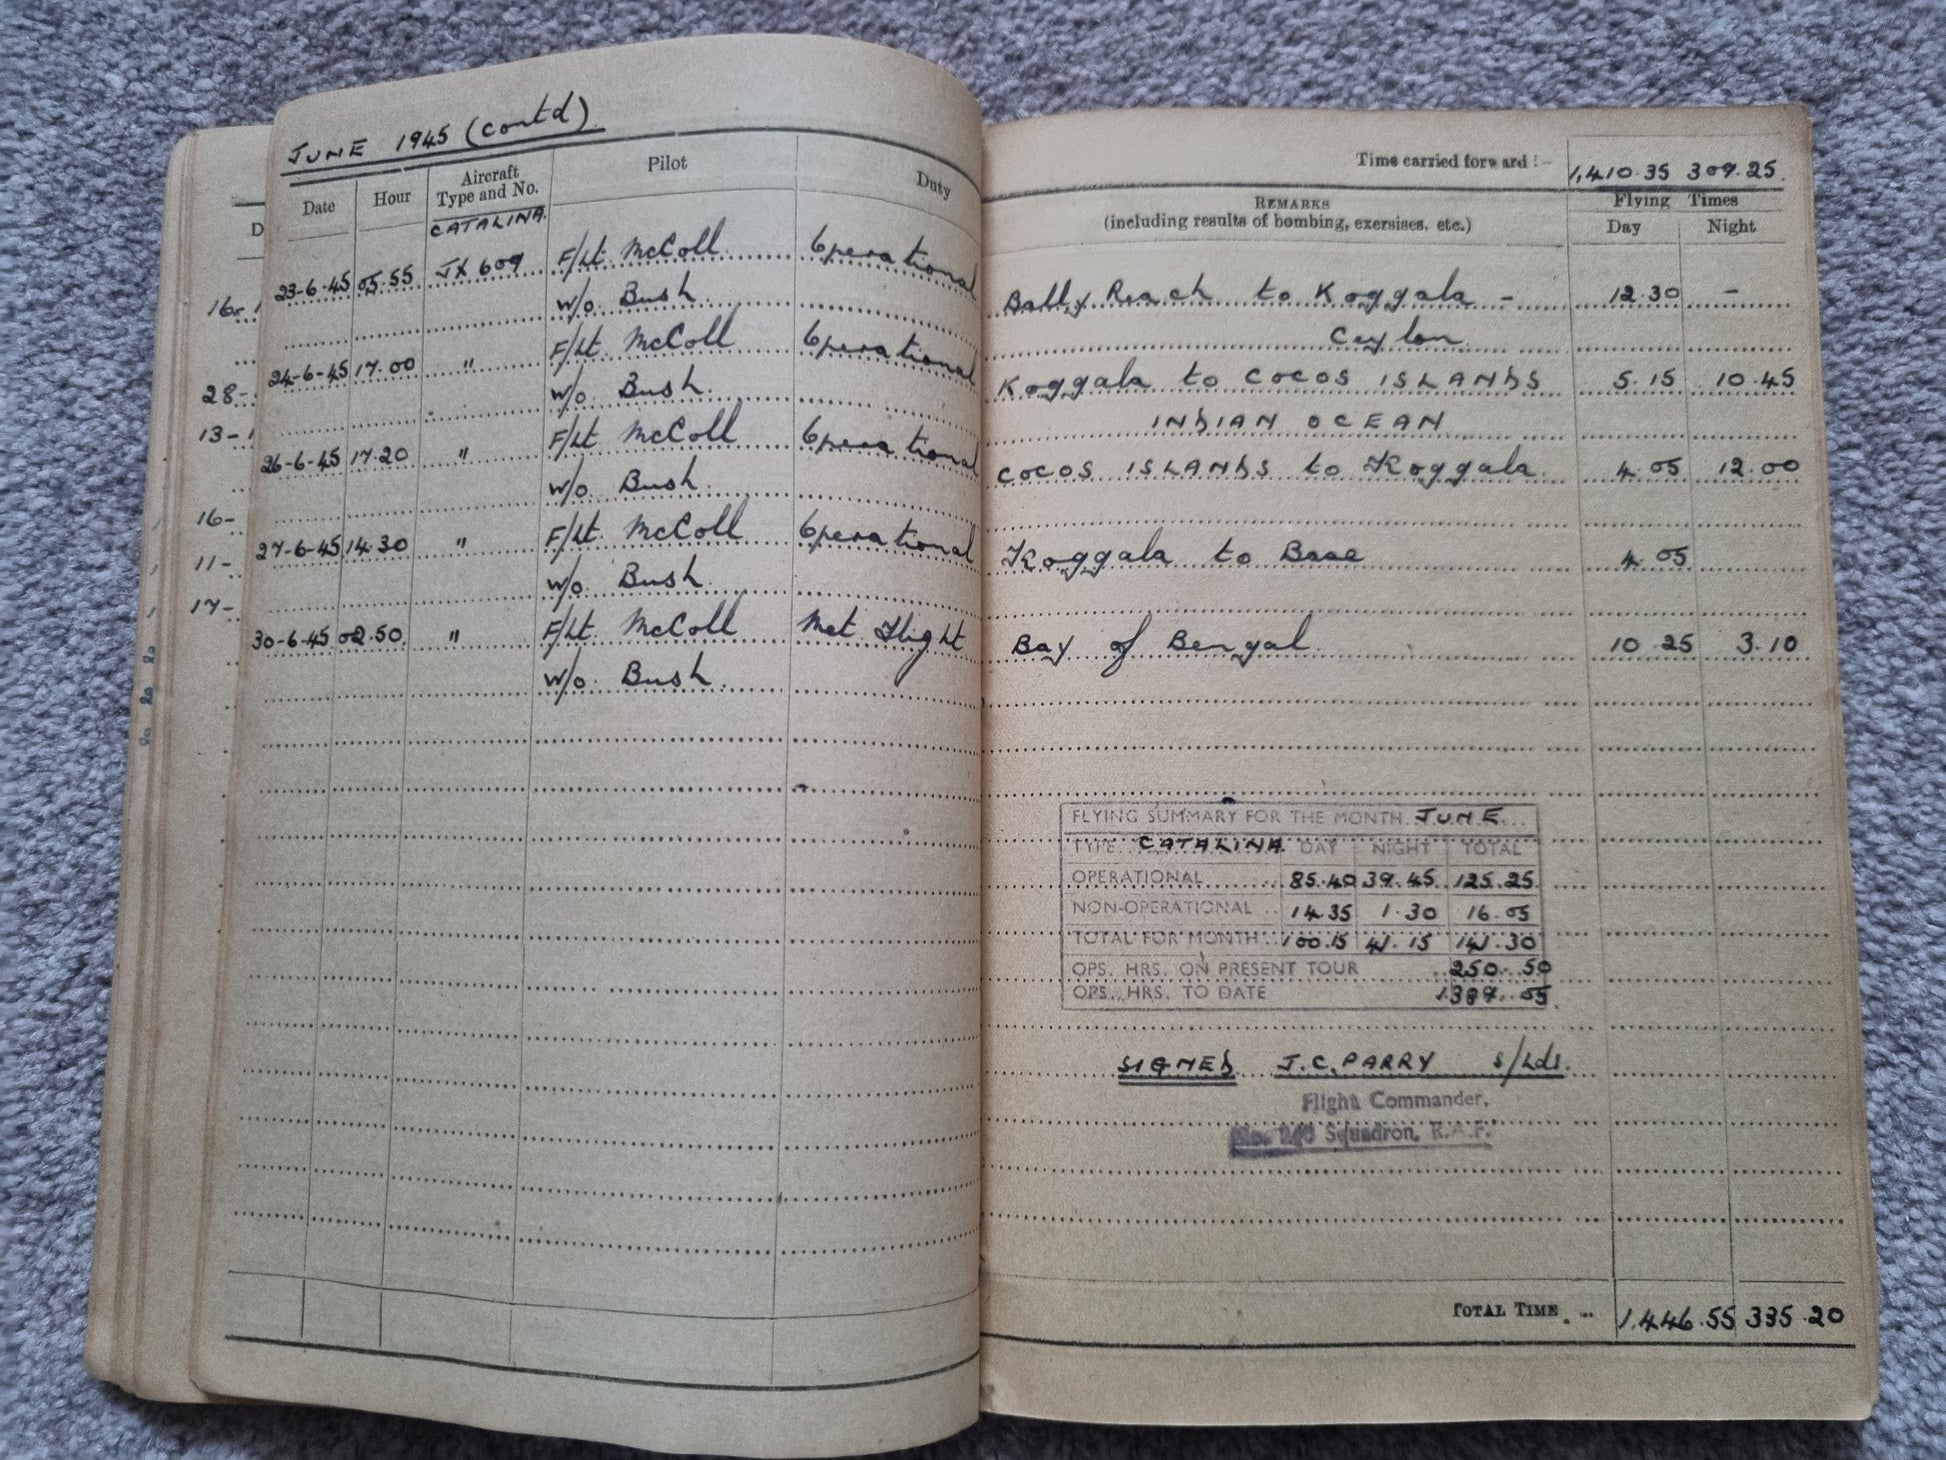 JUNE 1945 (contd)
Date Hour Aircraft Type and No. Pilot Duty
CATALINA
23-6-45 05.55 JX 609 F/Lt McColl Operational
W/o Bush
24-6-45 17.00 " F/Lt McColl Operational
W/o Bush
26-6-45 17.20 " F/Lt McColl Operational
W/o Bush
27-6-45 14.30 " F/Lt McColl Operational
W/o Bush
30-6-45 02.50 " F/Lt McColl Met Flight
W/o Bush
16-
28-
13-
16-
11-
17-
Time carried forward :- 1,410.35 309.25
REMARKS
(including results of bombing, exersises, etc.)
Flying Times
Day Night
to Koggala - 12.30 -
Ceylon
Koggala to COCOS ISLANDS 5.15 10.45
INDIAN OCEAN
COCOS ISLANDS to Koggala 4.05 12.00
Koggala to Base 4.05
Bay of Bengal 10.25 3.10
FLYING SUMMARY FOR THE MONTH JUNE
TYPE CATALINA DAY NIGHT TOTAL
OPERATIONAL 85.40 39.45 125.25
NON-OPERATIONAL 14.35 1.30 16.05
TOTAL FOR MONTH 100.15 41.15 141.30
OPS. HRS. ON PRESENT TOUR 250.50
OPS. HRS. TO DATE
SIGNED J.C. PARRY S/Ldr.
Flight Commander,
No. 240 Squadron, R.A.F.
TOTAL TIME ... 1,446.55 335.20